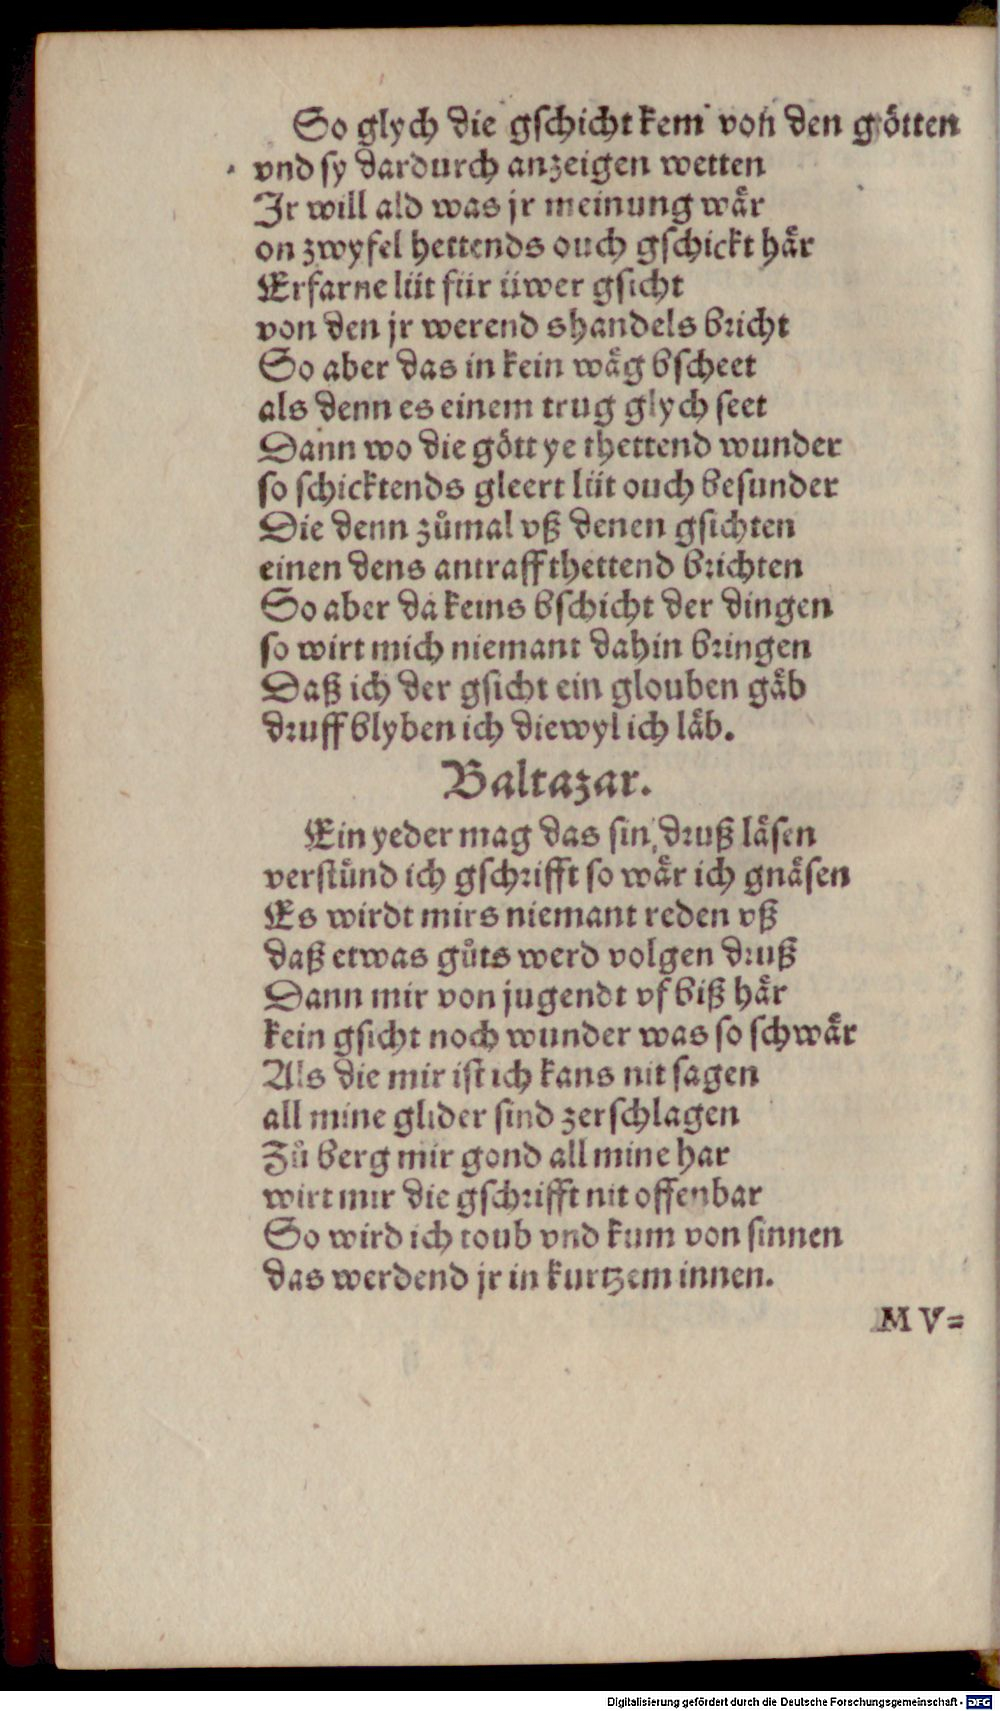 So glych die gschicht kem von den götten
vnd sy dardurch anzeigen wetten
Jr will ald was jr meinung waͤr
on zwyfel hettends ouch gschickt haͤr
Erfarne lüt für üwer gsicht
von den jr werend shandels bricht
So aber das in kein waͤg bscheet
als denn es einem trug glych seet
Dann wo die gött ye thettend wunder
so schicktends gleert lüt ouch besunder
Die denn zůmal vß denen gsichten
einen dens antraff thettend brichten
So aber da keins bschicht der dingen
so wirt mich niemant dahin bringen
Daß ich der gsicht ein glouben gaͤb
druff blyben ich diewyl ich laͤb.
Baltazar.
Ein yeder mag das sin, druß laͤsen
verstünd ich gschrifft so waͤr ich gnaͤsen
Es wirdt mirs niemant reden vß
daß etwas gůts werd volgen druß
Dann mir von jugendt vf biß haͤr
kein gsicht noch wunder was so schwaͤr
Als die mir ist ich kans nit sagen
all mine glider sind zerschlagen
Zů berg mir gond all mine har
wirt mir die gschrifft nit offenbar
So wird ich toub vnd kum von sinnen
das werdend jr in kurtzem innen.
MV=
Digitalisierung gefördert durch die Deutsche Forschungsgemeinschaft - DFG